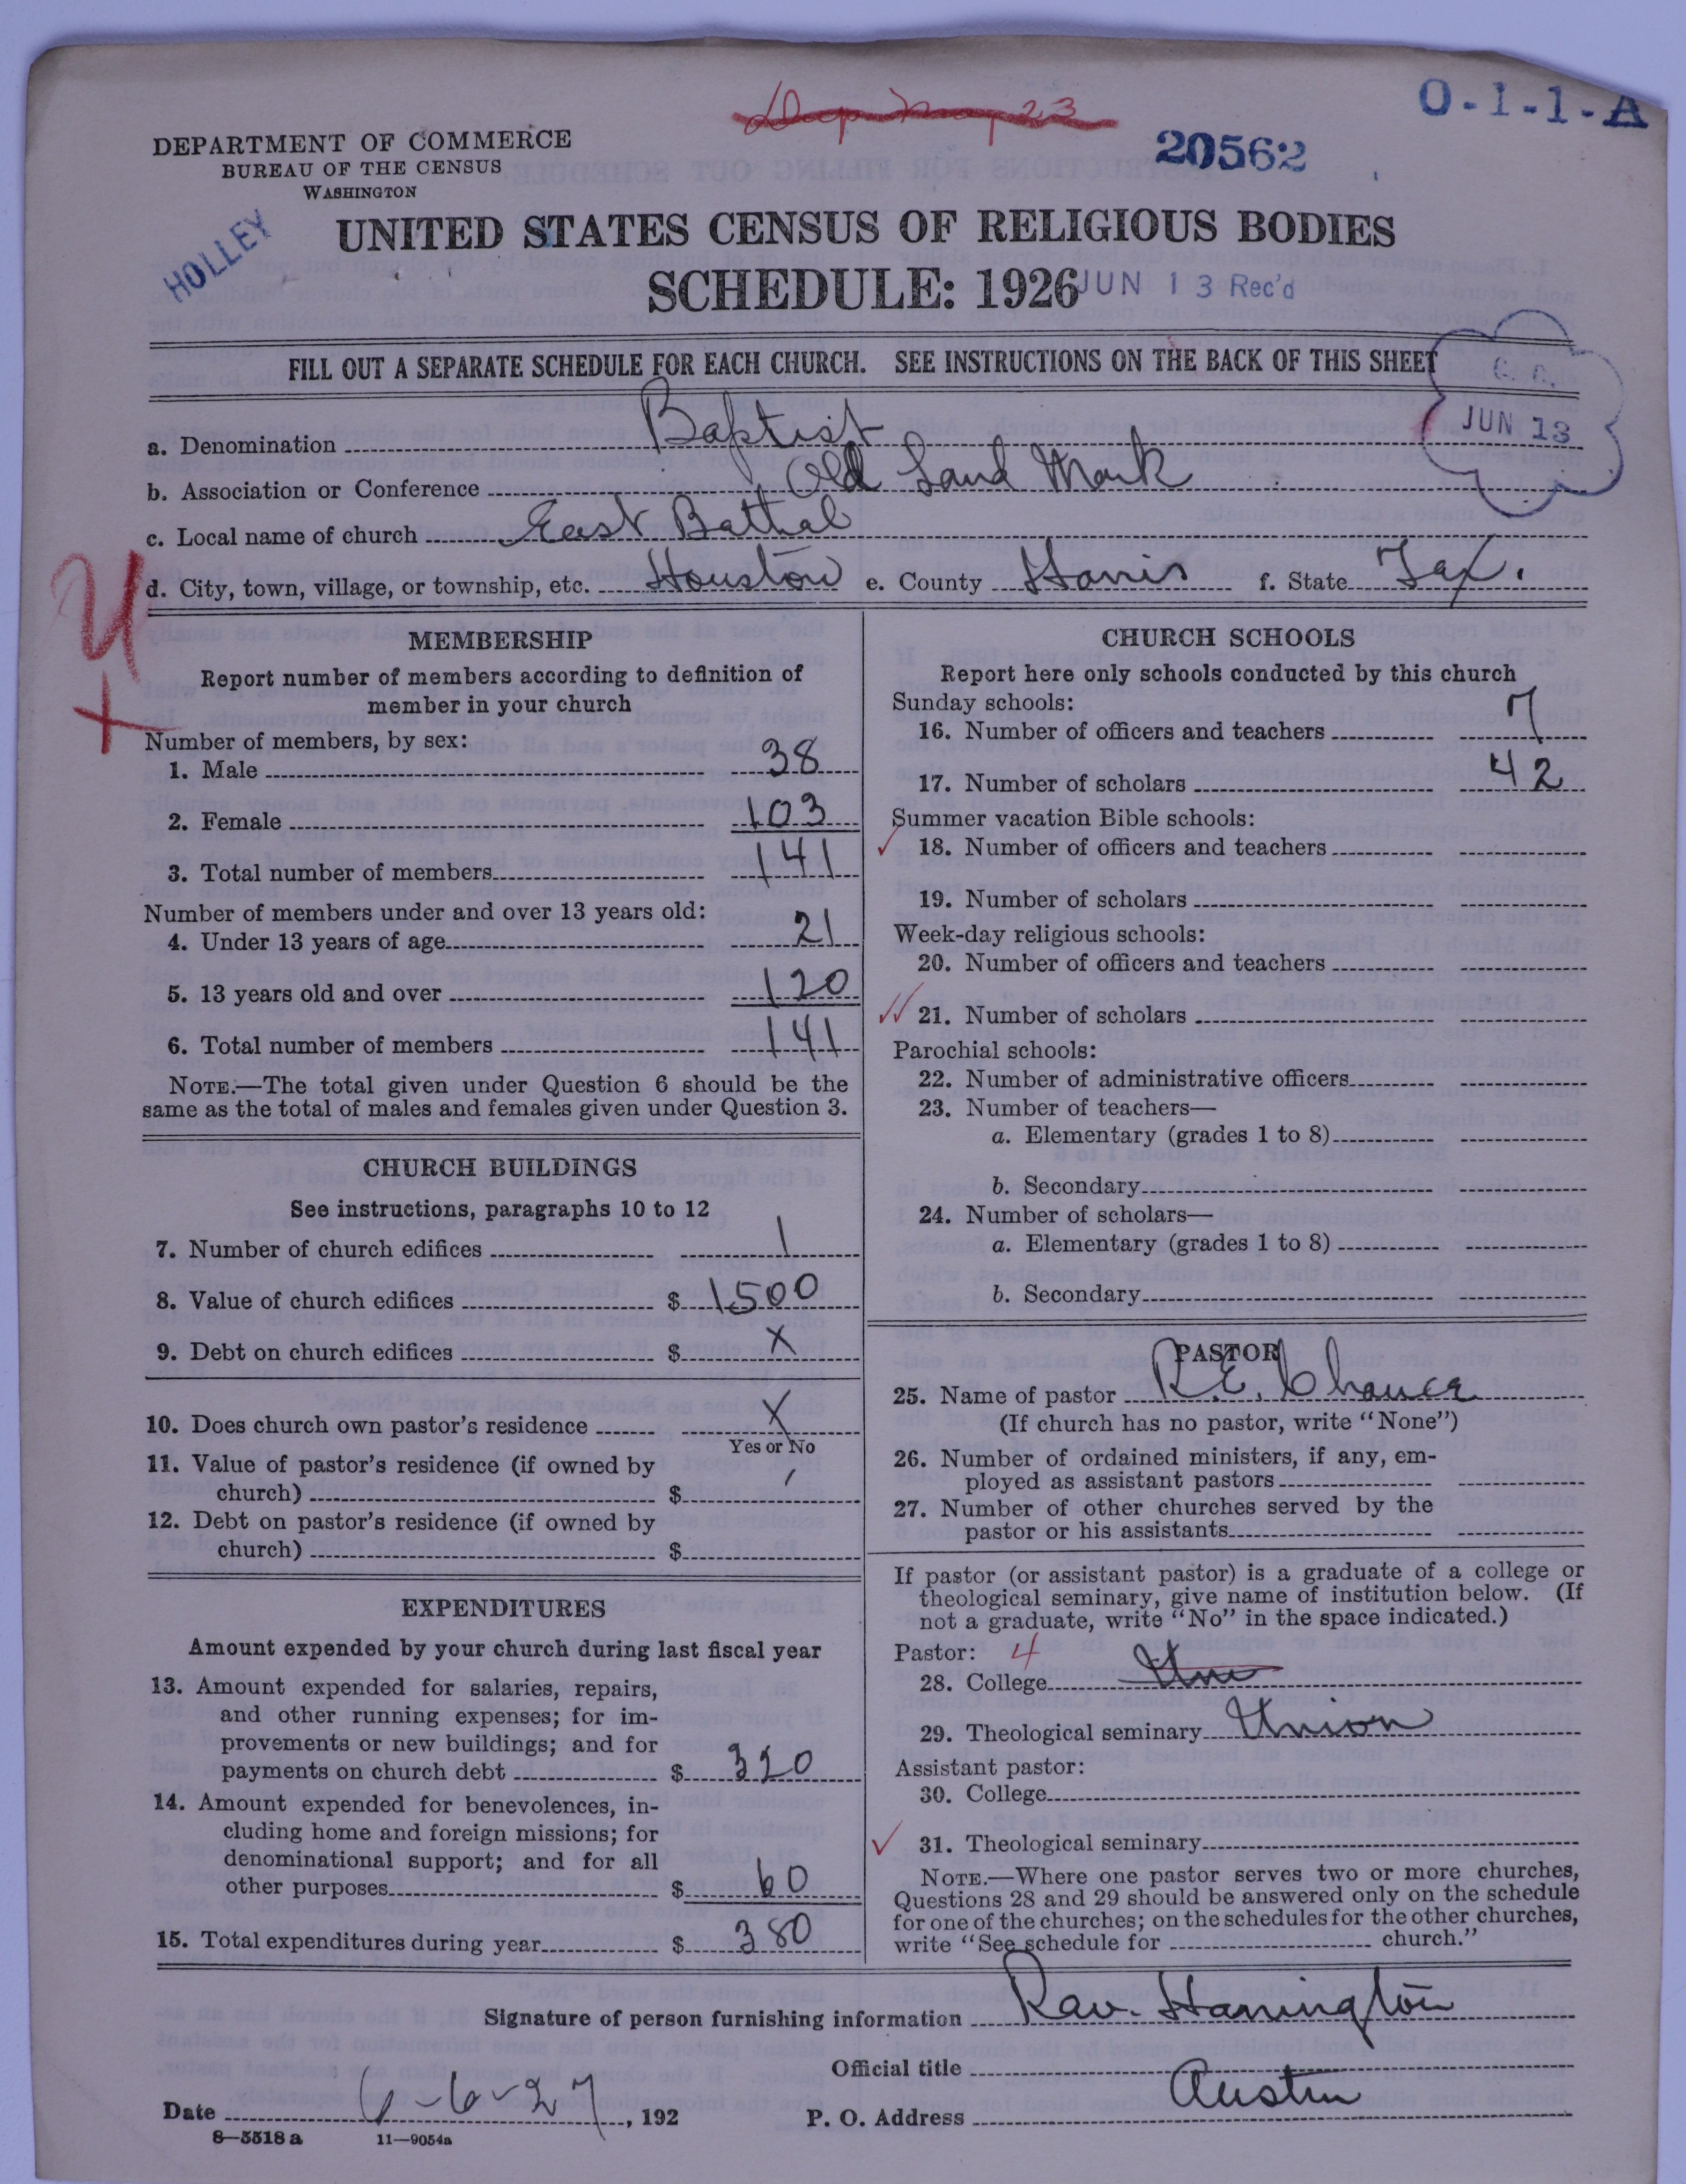 O-1-1-A
20562
DEPARTMENT OF COMMERCE
BUREAU OF THE CENSUS
WASHINGTON
HOLLEY
UNITED STATES CENSUS OF RELIGIOUS BODIES
SCHEDULE: 1926
JUN 13 Rec'd
FILL OUT A SEPARATE SCHEDULE FOR EACH CHURCH. SEE INSTRUCTIONS ON THE BACK OF THIS SHEET
JUN 13
a. Denomination Baptist
b. Association or Conference Old Land Mark
c. Local name of church East Bathal
d. City, town, village, or township, etc. Houston e. County Harris f. State Tex.
MEMBERSHIP
Report number of members according to definition of
member in your church
Number of members, by sex:
1. Male 38
2. Female 103
3. Total number of members 141
Number of members under and over 13 years old:
4. Under 13 years of age 21
5. 13 years old and over 120
6. Total number of members 141
NOTE.—The total given under Question 6 should be the
same as the total of males and females given under Question 3.
CHURCH BUILDINGS
See instructions, paragraphs 10 to 12
7. Number of church edifices 1
8. Value of church edifices $ 1500
9. Debt on church edifices $ X
10. Does church own pastor's residence X
Yes or No
11. Value of pastor's residence (if owned by
church) $
12. Debt on pastor's residence (if owned by
church) $
EXPENDITURES
Amount expended by your church during last fiscal year
13. Amount expended for salaries, repairs,
and other running expenses; for im-
provements or new buildings; and for
payments on church debt $ 320
14. Amount expended for benevolences, in-
cluding home and foreign missions; for
denominational support; and for all
other purposes $ 60
15. Total expenditures during year $ 380
CHURCH SCHOOLS
Report here only schools conducted by this church
Sunday schools:
16. Number of officers and teachers 7
17. Number of scholars 42
Summer vacation Bible schools:
18. Number of officers and teachers
19. Number of scholars
Week-day religious schools:
20. Number of officers and teachers
21. Number of scholars
Parochial schools:
22. Number of administrative officers
23. Number of teachers—
a. Elementary (grades 1 to 8)
b. Secondary
24. Number of scholars—
a. Elementary (grades 1 to 8)
b. Secondary
PASTOR
25. Name of pastor R.E. Chance
(If church has no pastor, write "None")
26. Number of ordained ministers, if any, em-
ployed as assistant pastors
27. Number of other churches served by the
pastor or his assistants
If pastor (or assistant pastor) is a graduate of a college or
theological seminary, give name of institution below. (If
not a graduate, write "No" in the space indicated.)
Pastor: 4
28. College
29. Theological seminary Union
Assistant pastor:
30. College
31. Theological seminary
NOTE.—Where one pastor serves two or more churches,
Questions 28 and 29 should be answered only on the schedule
for one of the churches; on the schedules for the other churches,
write "See schedule for church."
Signature of person furnishing information Rav. Harrington
Official title
Date 6-6-27, 192 P. O. Address Austin
8-5518a 11-9054a